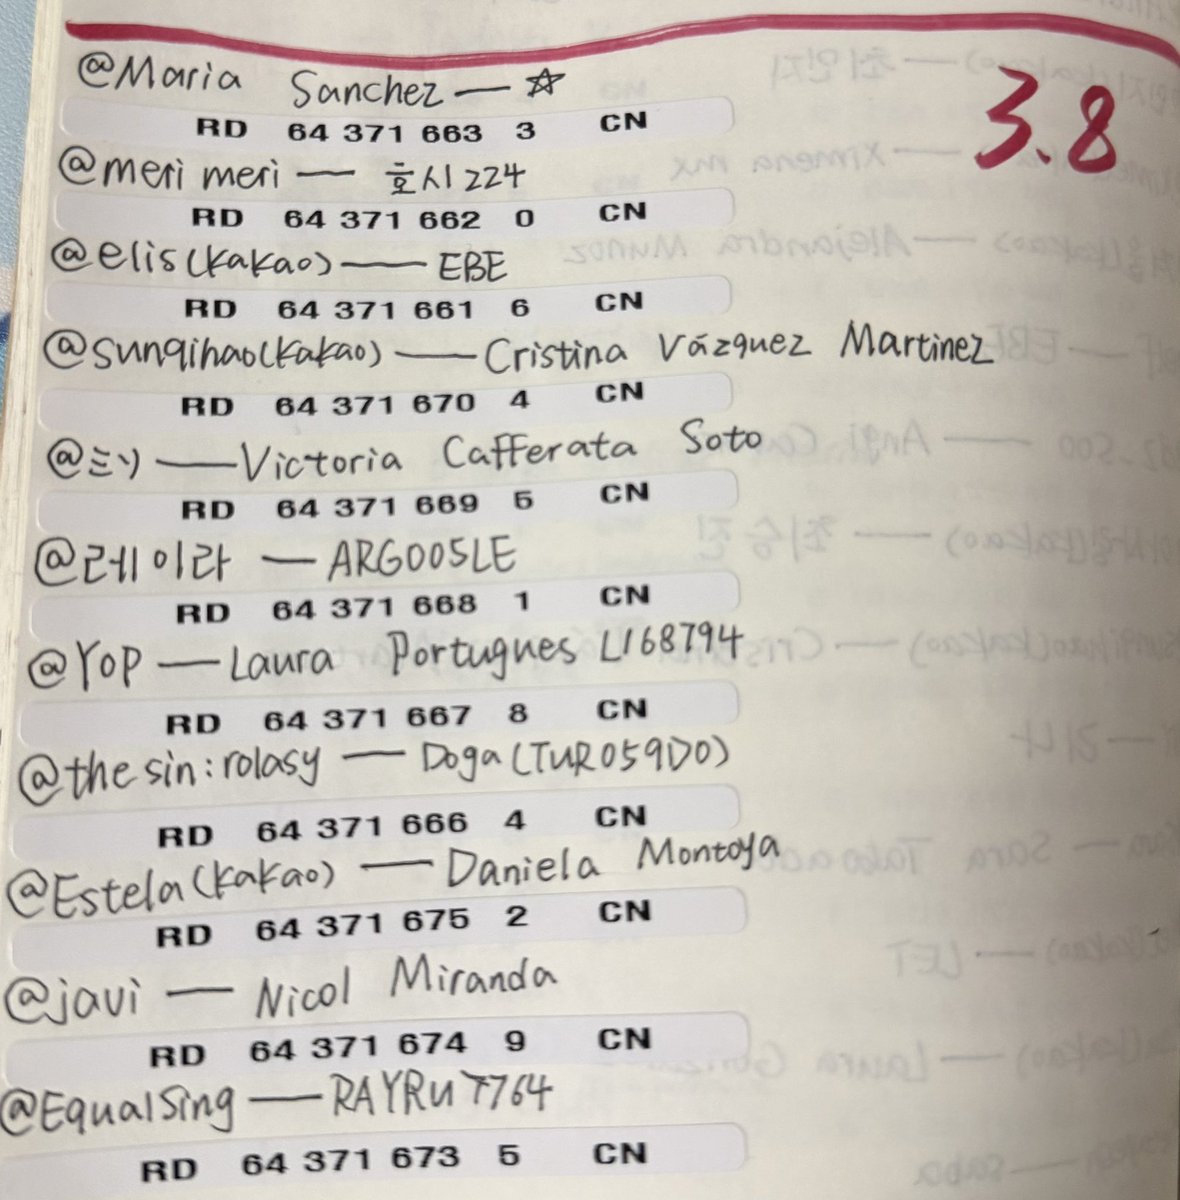 3.8
@Maria Sanchez — ☆
RD 64 371 663 3 CN
@meri meri — 호시224
RD 64 371 662 0 CN
@elis(kakao) — EBE
RD 64 371 661 6 CN
@sunqihao(kakao) — Cristina Vázquez Martinez
RD 64 371 670 4 CN
@ミソ — Victoria Cafferata Soto
RD 64 371 669 5 CN
@레이라 — ARG005LE
RD 64 371 668 1 CN
@YOP — Laura Portugues L168794
RD 64 371 667 8 CN
@the sin:rolasy — Doga(TUR059DO)
RD 64 371 666 4 CN
@Estela(kakao) — Daniela Montoya
RD 64 371 675 2 CN
@javi — Nicol Miranda
RD 64 371 674 9 CN
@EqualSing — RAYRU7764
RD 64 371 673 5 CN